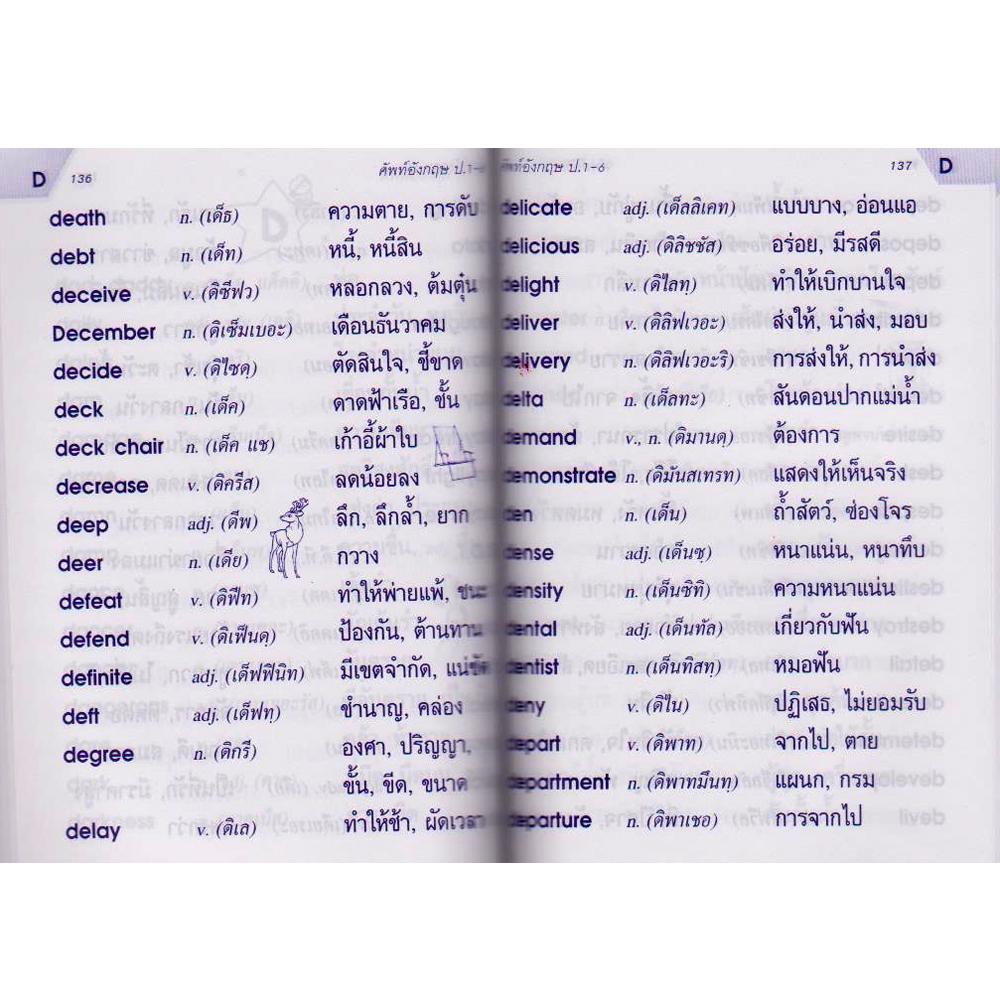 D 136 ศัพท์อังกฤษ ป.1-
death n. (เด็ธ) ความตาย, การดับ
debt n. (เด็ท) หนี้, หนี้สิน
deceive v. (ดิซีฟว) หลอกลวง, ต้มตุ๋น
December n. (ดิเซ็มเบอะ) เดือนธันวาคม
decide v. (ดิไซดฺ) ตัดสินใจ, ชี้ขาด
deck n. (เด็ค) ดาดฟ้าเรือ, ชั้น
deck chair n. (เด็ค แช) เก้าอี้ผ้าใบ
decrease v. (ดิครีส) ลดน้อยลง
deep adj. (ดีพ) ลึก, ลึกล้ำ, ยาก
deer n. (เดีย) กวาง
defeat v. (ดิฟีท) ทำให้พ่ายแพ้, ชนะ
defend v. (ดิเฟ็นดฺ) ป้องกัน, ต้านทาน
definite adj. (เด็ฟฟินิท) มีเขตจำกัด, แน่ชัด
deft adj. (เด็ฟท) ชำนาญ, คล่อง
degree n. (ดิกรี) องศา, ปริญญา,
ขั้น, ขีด, ขนาด
delay v. (ดิเล) ทำให้ช้า, ผัดเวลา
ศัพท์อังกฤษ ป.1-6 137 D
delicate adj. (เด็ลลิเคท) แบบบาง, อ่อนแอ
delicious adj. (ดิลิชชัส) อร่อย, มีรสดี
delight v. (ดิไลทฺ) ทำให้เบิกบานใจ
deliver v. (ดิลิฟเวอะ) ส่งให้, นำส่ง, มอบ
delivery n. (ดิลิฟเวอะริ) การส่งให้, การนำส่ง
delta n. (เด็ลทะ) สันดอนปากแม่น้ำ
demand v., n. (ดิมานดฺ) ต้องการ
demonstrate v. (ดิมันสเทรท) แสดงให้เห็นจริง
den n. (เด็น) ถ้ำสัตว์, ซ่องโจร
dense adj. (เด็นซฺ) หนาแน่น, หนาทึบ
density n. (เด็นซิทิ) ความหนาแน่น
dental adj. (เด็นทัล) เกี่ยวกับฟัน
dentist n. (เด็นทิสทฺ) หมอฟัน
deny v. (ดิไน) ปฏิเสธ, ไม่ยอมรับ
depart v. (ดิพาท) จากไป, ตาย
department n. (ดิพาทมึนทฺ) แผนก, กรม
departure n. (ดิพาเชอ) การจากไป